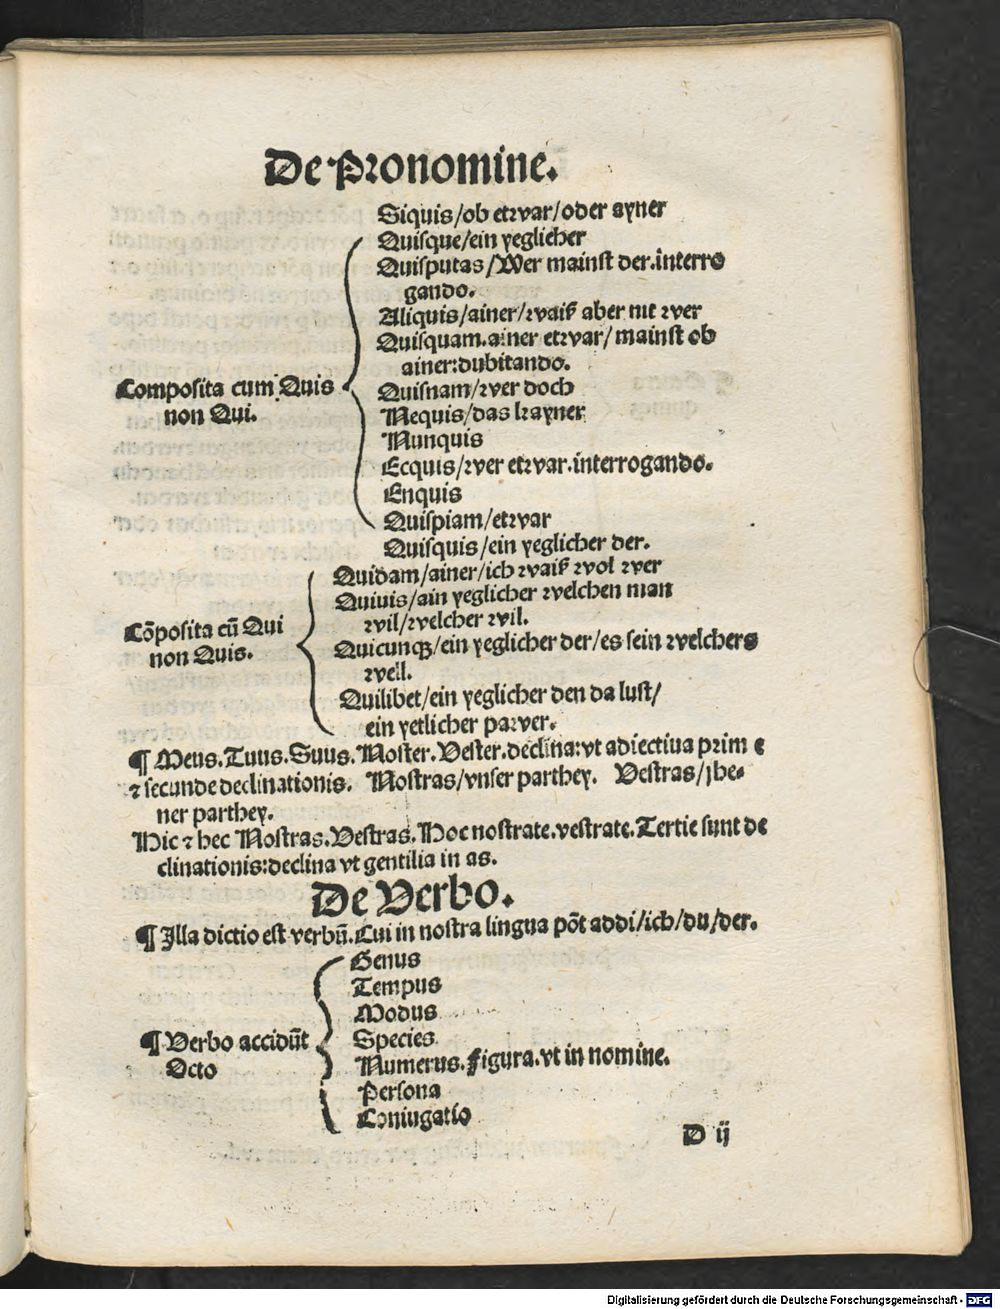 De Pronomine.
Siquis/ob etwar/oder ayner
Quisque/ein yeglicher
Quisputas/Wer mainst der.interro
gando.
Aliquis/ainer/waiß aber nit wer
Quisquam.ainer etwar/mainst ob
ainer:dubitando.
Composita cum Quis
non Qui.
Quisnam/wer doch
Nequis/das kayner
Nunquis
Ecquis/wer etwar.interrogando.
Enquis
Quispiam/etwar
Quisquis/ein yeglicher der.
Quidam/ainer/ich waiß wol wer
Quiuis/ain yeglicher welchen man
wil/welcher wil.
Cōposita cū Qui
non Quis.
Quicunqꝫ/ein yeglicher der/es sein welchers
well.
Quilibet/ein yeglicher den da lust/
ein yetlicher pawer.
¶ Meus.Tuus.Suus.Noster.Vester.declina:vt adiectiua prim e
⁊ secunde declinationis. Nostras/vnser parthey. Vestras/jhe-
ner parthey.
Hic ⁊ hec Nostras.Vestras.Hoc nostrate.vestrate.Tertie sunt de
clinationis:declina vt gentilia in as.
De Verbo.
¶ Illa dictio est verbū.Cui in nostra lingua pōt addi/ich/du/der.
¶ Verbo accidūt
Octo
Genus
Tempus
Modus
Species
Numerus.figura.vt in nomine.
Persona
Coniugatio
D ij
Digitalisierung gefördert durch die Deutsche Forschungsgemeinschaft - DFG